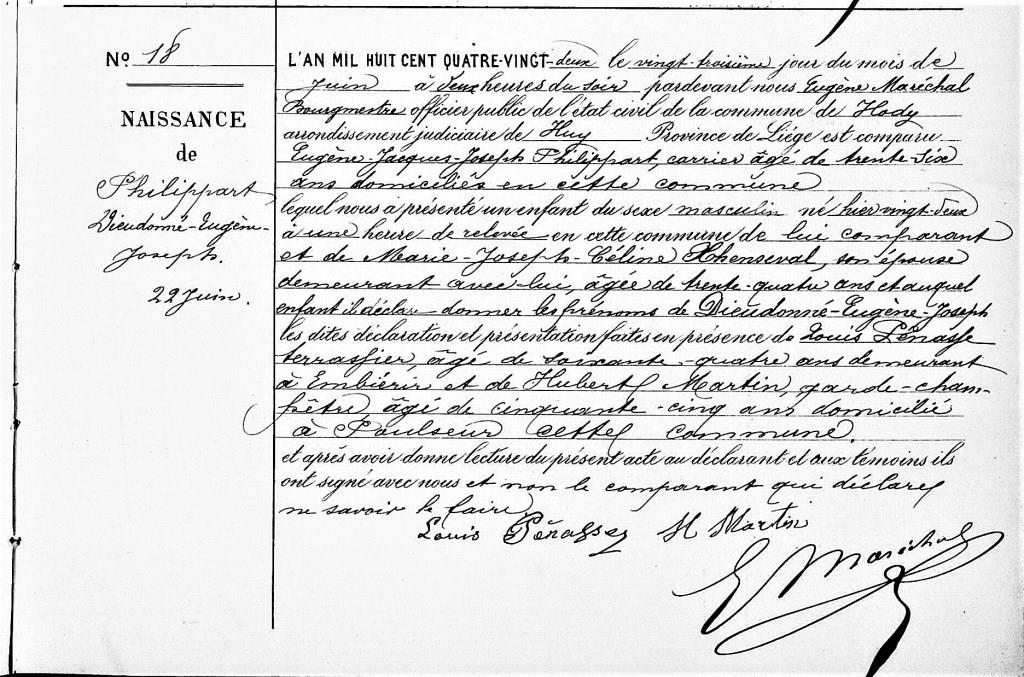 No 18
NAISSANCE
de
Philippart,
Dieudonné-Eugène-
Joseph.
22 Juin.
L'AN MIL HUIT CENT QUATRE-VINGT-deux le vingt-troisième jour du mois de
Juin à deux heures du soir pardevant nous Eugène Maréchal
Bourgmestre officier public de l'état civil de la commune de Hody
arrondissement judiciaire de Huy Province de Liége est comparu
Eugène-Jacques-Joseph Philippart, carrier âgé de trente-six
ans domiciliés en cette commune
lequel nous a présenté un enfant du sexe masculin né hier vingt-deux
à une heure de relevée en cette commune de lui comparant
et de Marie-Joseph-Céline Xhenseval, son épouse
demeurant avec lui, âgée de trente-quatre ans et auquel
enfant il déclare donner les prénoms de Dieudonné-Eugène-Joseph
les dites déclaration et présentation faites en présence de Louis Pénasse
terrassier, âgé de soixante-quatre ans demeurant
à Embierir et de Hubert Martin, garde-cham-
pêtre, âgé de cinquante-cinq ans domicilié
à Poulseur cette commune.
et après avoir donne lecture du présent acte au déclarant et aux témoins ils
ont signé avec nous et non le comparant qui déclare
ne savoir le faire
Louis Pénasse H Martin
E Maréchal